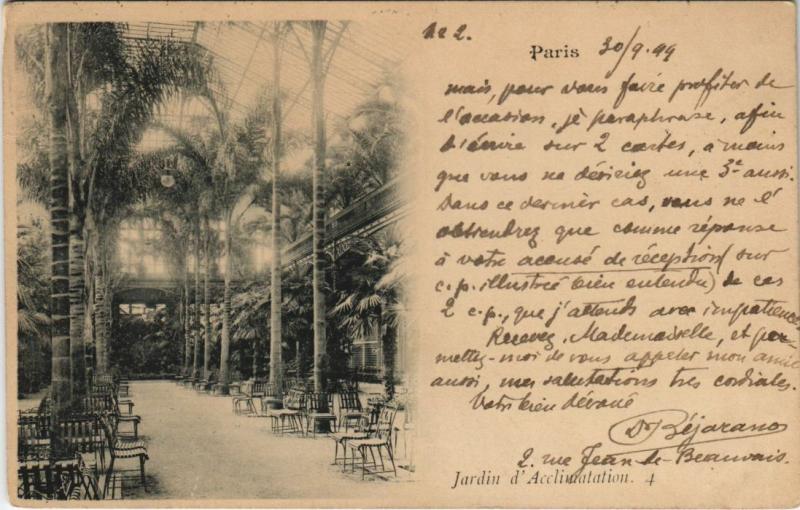 No 2.
Paris 30/9.99
mais, pour vous faire profiter de
l'occasion, je paraphrase, afin
d'écrire sur 2 cartes, à moins
que vous ne désiriez une 3e aussi.
Dans ce dernier cas, vous ne l'
obtiendrez que comme réponse
à votre accusé de réception (sur
c.p. illustrée bien entendu) de ces
2 c.p., que j'attends avec impatience
Recevez, Mademoiselle, et per-
mettez-moi de vous appeler mon amie
aussi, mes salutations très cordiales.
Votre bien dévoué
Dr Béjarano
2. rue Jean-de-Beauvais.
Jardin d'Acclimatation. 4